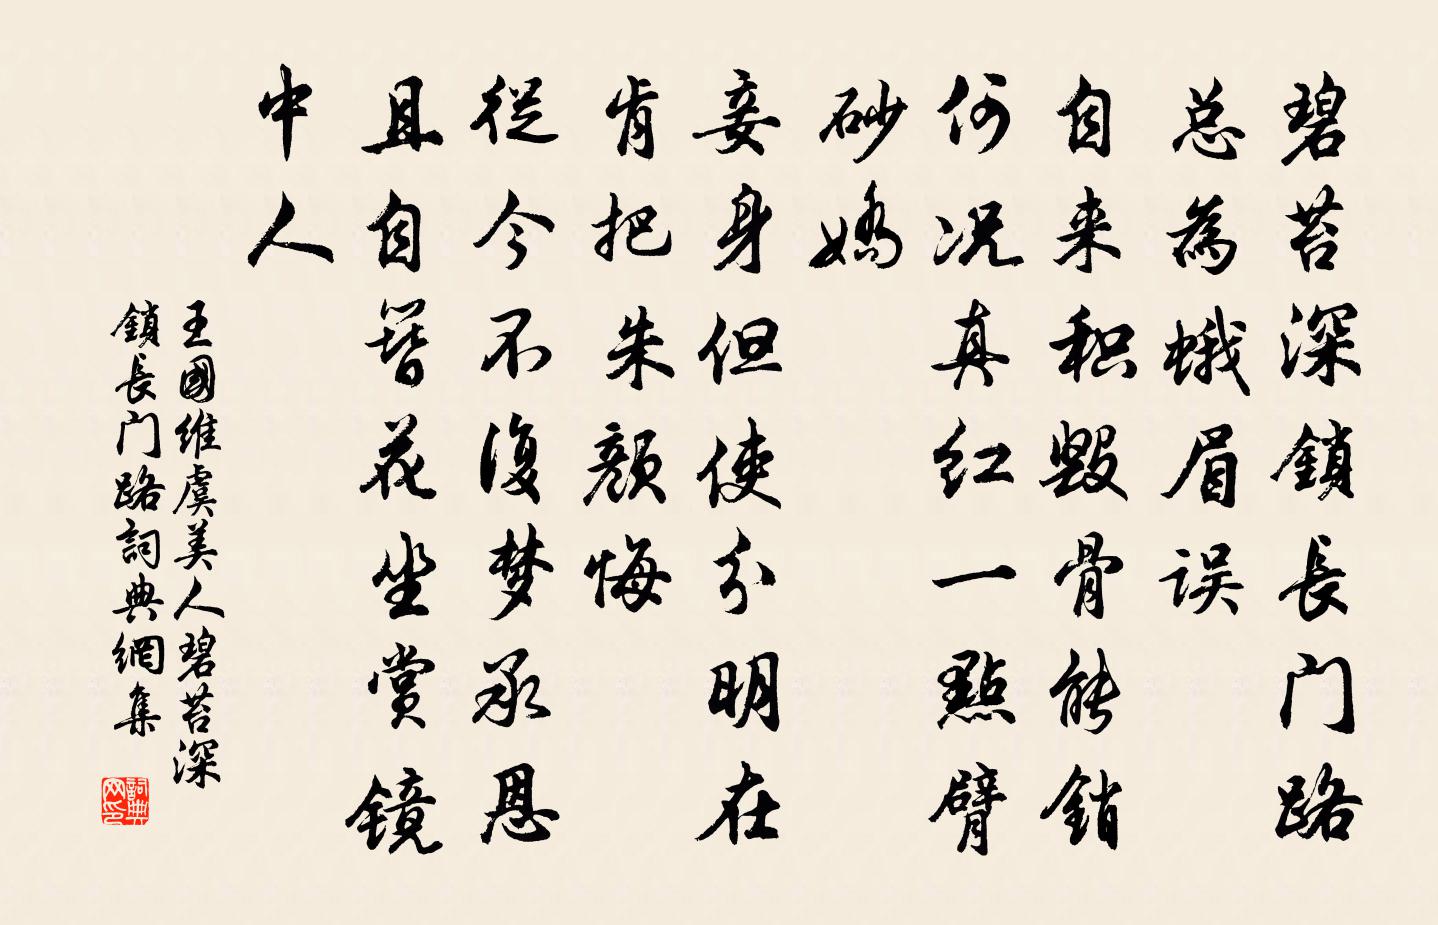 碧苔深鎖長门路
总為蛾眉误
自来积毁骨能銷
何况真红一點臂
砂嬌
妾身但使分明在
肯把朱颜悔
從今不復梦承恩
且自簪花坐赏镜
中人
王國维虞美人碧苔深
鎖長门路詞典網集
詞典
网印